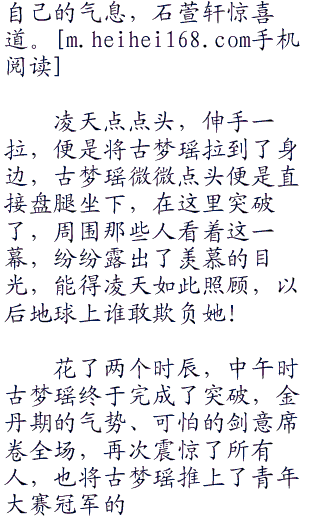 自己的气息，石萱轩惊喜
道。[m.heihei168.com手机
阅读]
凌天点点头，伸手一
拉，便是将古梦瑶拉到了身
边，古梦瑶微微点头便是直
接盘腿坐下，在这里突破
了，周围那些人看着这一
幕，纷纷露出了羡慕的目
光，能得凌天如此照顾，以
后地球上谁敢欺负她！
花了两个时辰，中午时
古梦瑶终于完成了突破，金
丹期的气势、可怕的剑意席
卷全场，再次震惊了所有
人，也将古梦瑶推上了青年
大赛冠军的